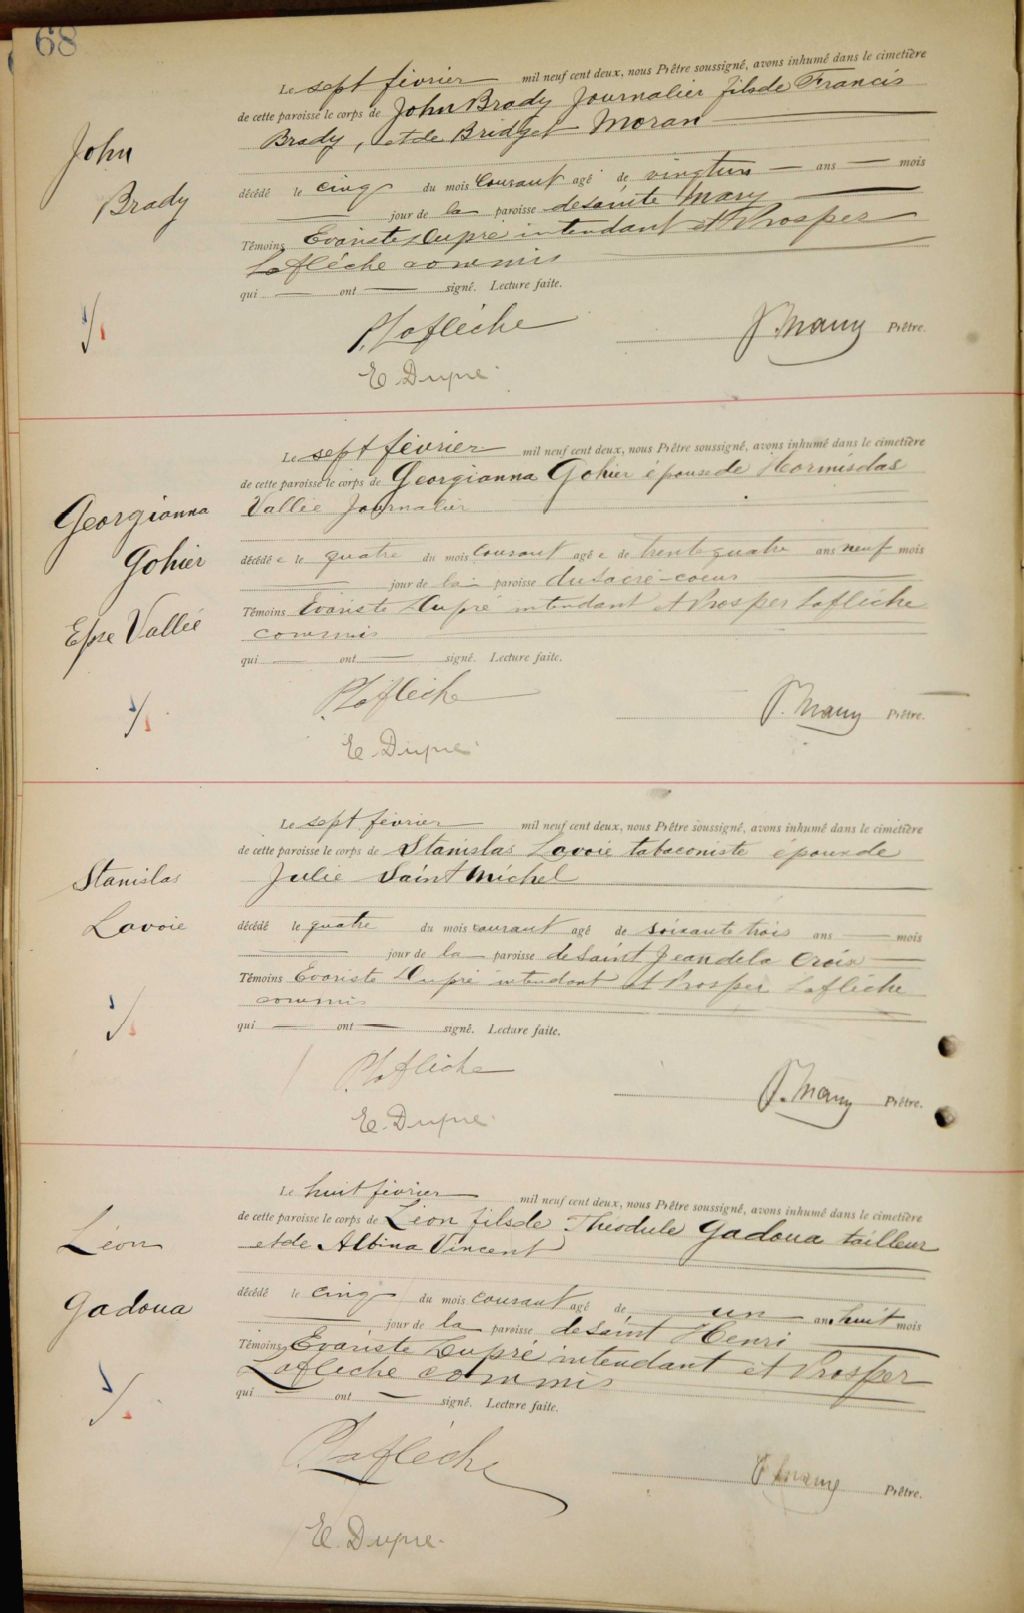 68
Le sept février mil neuf cent deux, nous Prêtre soussigné, avons inhumé dans le cimetière
de cette paroisse le corps de John Brady Journalier fils de Francis
Brady, et de Bridget Moran
John
Brady
décédé le cinq du mois courant agé de vingt un ans mois
jour de la paroisse de Sainte Mary
Témoins Evariste Dupré intendant et Prosper
Laflèche commis
qui ont signé. Lecture faite.
P. Laflèche
P. Prêtre.
E. Dupré
Le sept février mil neuf cent deux, nous Prêtre soussigné, avons inhumé dans le cimetière
de cette paroisse le corps de Georgianna Gohier épouse de Hormisdas
Vallée Journalier
Georgianna
Gohier
Epse Vallée
décédé e le quatre du mois courant agé e de trente quatre ans neuf mois
jour de la paroisse du Sacré-coeur
Témoins Evariste Dupré intendant et Prosper Laflèche
commis
qui ont signé. Lecture faite.
P. Laflèche
P. Prêtre.
E. Dupré
Le sept février mil neuf cent deux, nous Prêtre soussigné, avons inhumé dans le cimetière
de cette paroisse le corps de Stanislas Lavoie tabaconiste époux de
Julie Saint Michel
Stanislas
Lavoie
décédé le quatre du mois courant agé de soixante trois ans mois
jour de la paroisse de Saint Jean de la Croix
Témoins Evariste Dupré intendant et Prosper Laflèche
commis
qui ont signé. Lecture faite.
P. Laflèche
P. Prêtre.
E. Dupré
Le huit février mil neuf cent deux, nous Prêtre soussigné, avons inhumé dans le cimetière
de cette paroisse le corps de Léon fils de Theodule Gadoua tailleur
et de Albina Vincent
Léon
Gadoua
décédé le cinq du mois courant agé de un an huit mois
jour de la paroisse de Saint Henri
Témoins Evariste Dupré intendant et Prosper
Laflèche commis
qui ont signé. Lecture faite.
P. Laflèche
P. Prêtre.
E. Dupré